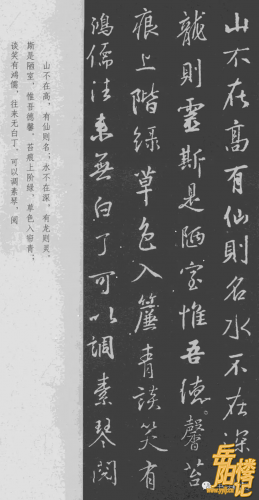 山不在高有仙则名水不在深
龙则灵斯是陋室惟吾德馨苔
痕上阶绿草色入帘青谈笑有
鸿儒往来无白丁可以调素琴阅
山不在高，有仙则名；水不在深，有龙则灵。
斯是陋室，惟吾德馨。苔痕上阶绿，草色入帘青。
谈笑有鸿儒，往来无白丁。可以调素琴，阅
岳阳楼记